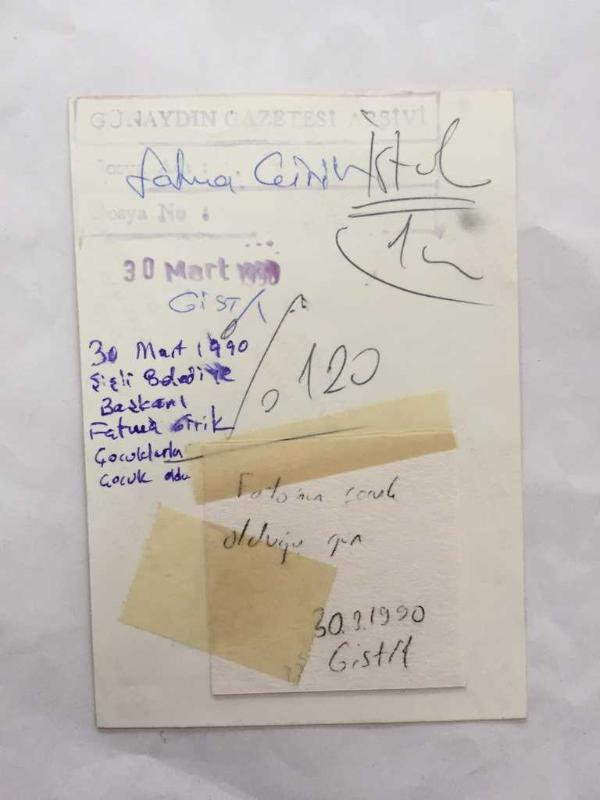 GÜNAYDIN GAZETESİ ARŞİVİ
Fatma Girik
Dosya No :
30 Mart 1990
GİST/A
% 120
30 Mart 1990
Şişli Belediye
Başkanı
Fatma Girik
Çocuklarla
Çocuk oldu
çocuk
olduğu gün
30.3.1990
GİST/A